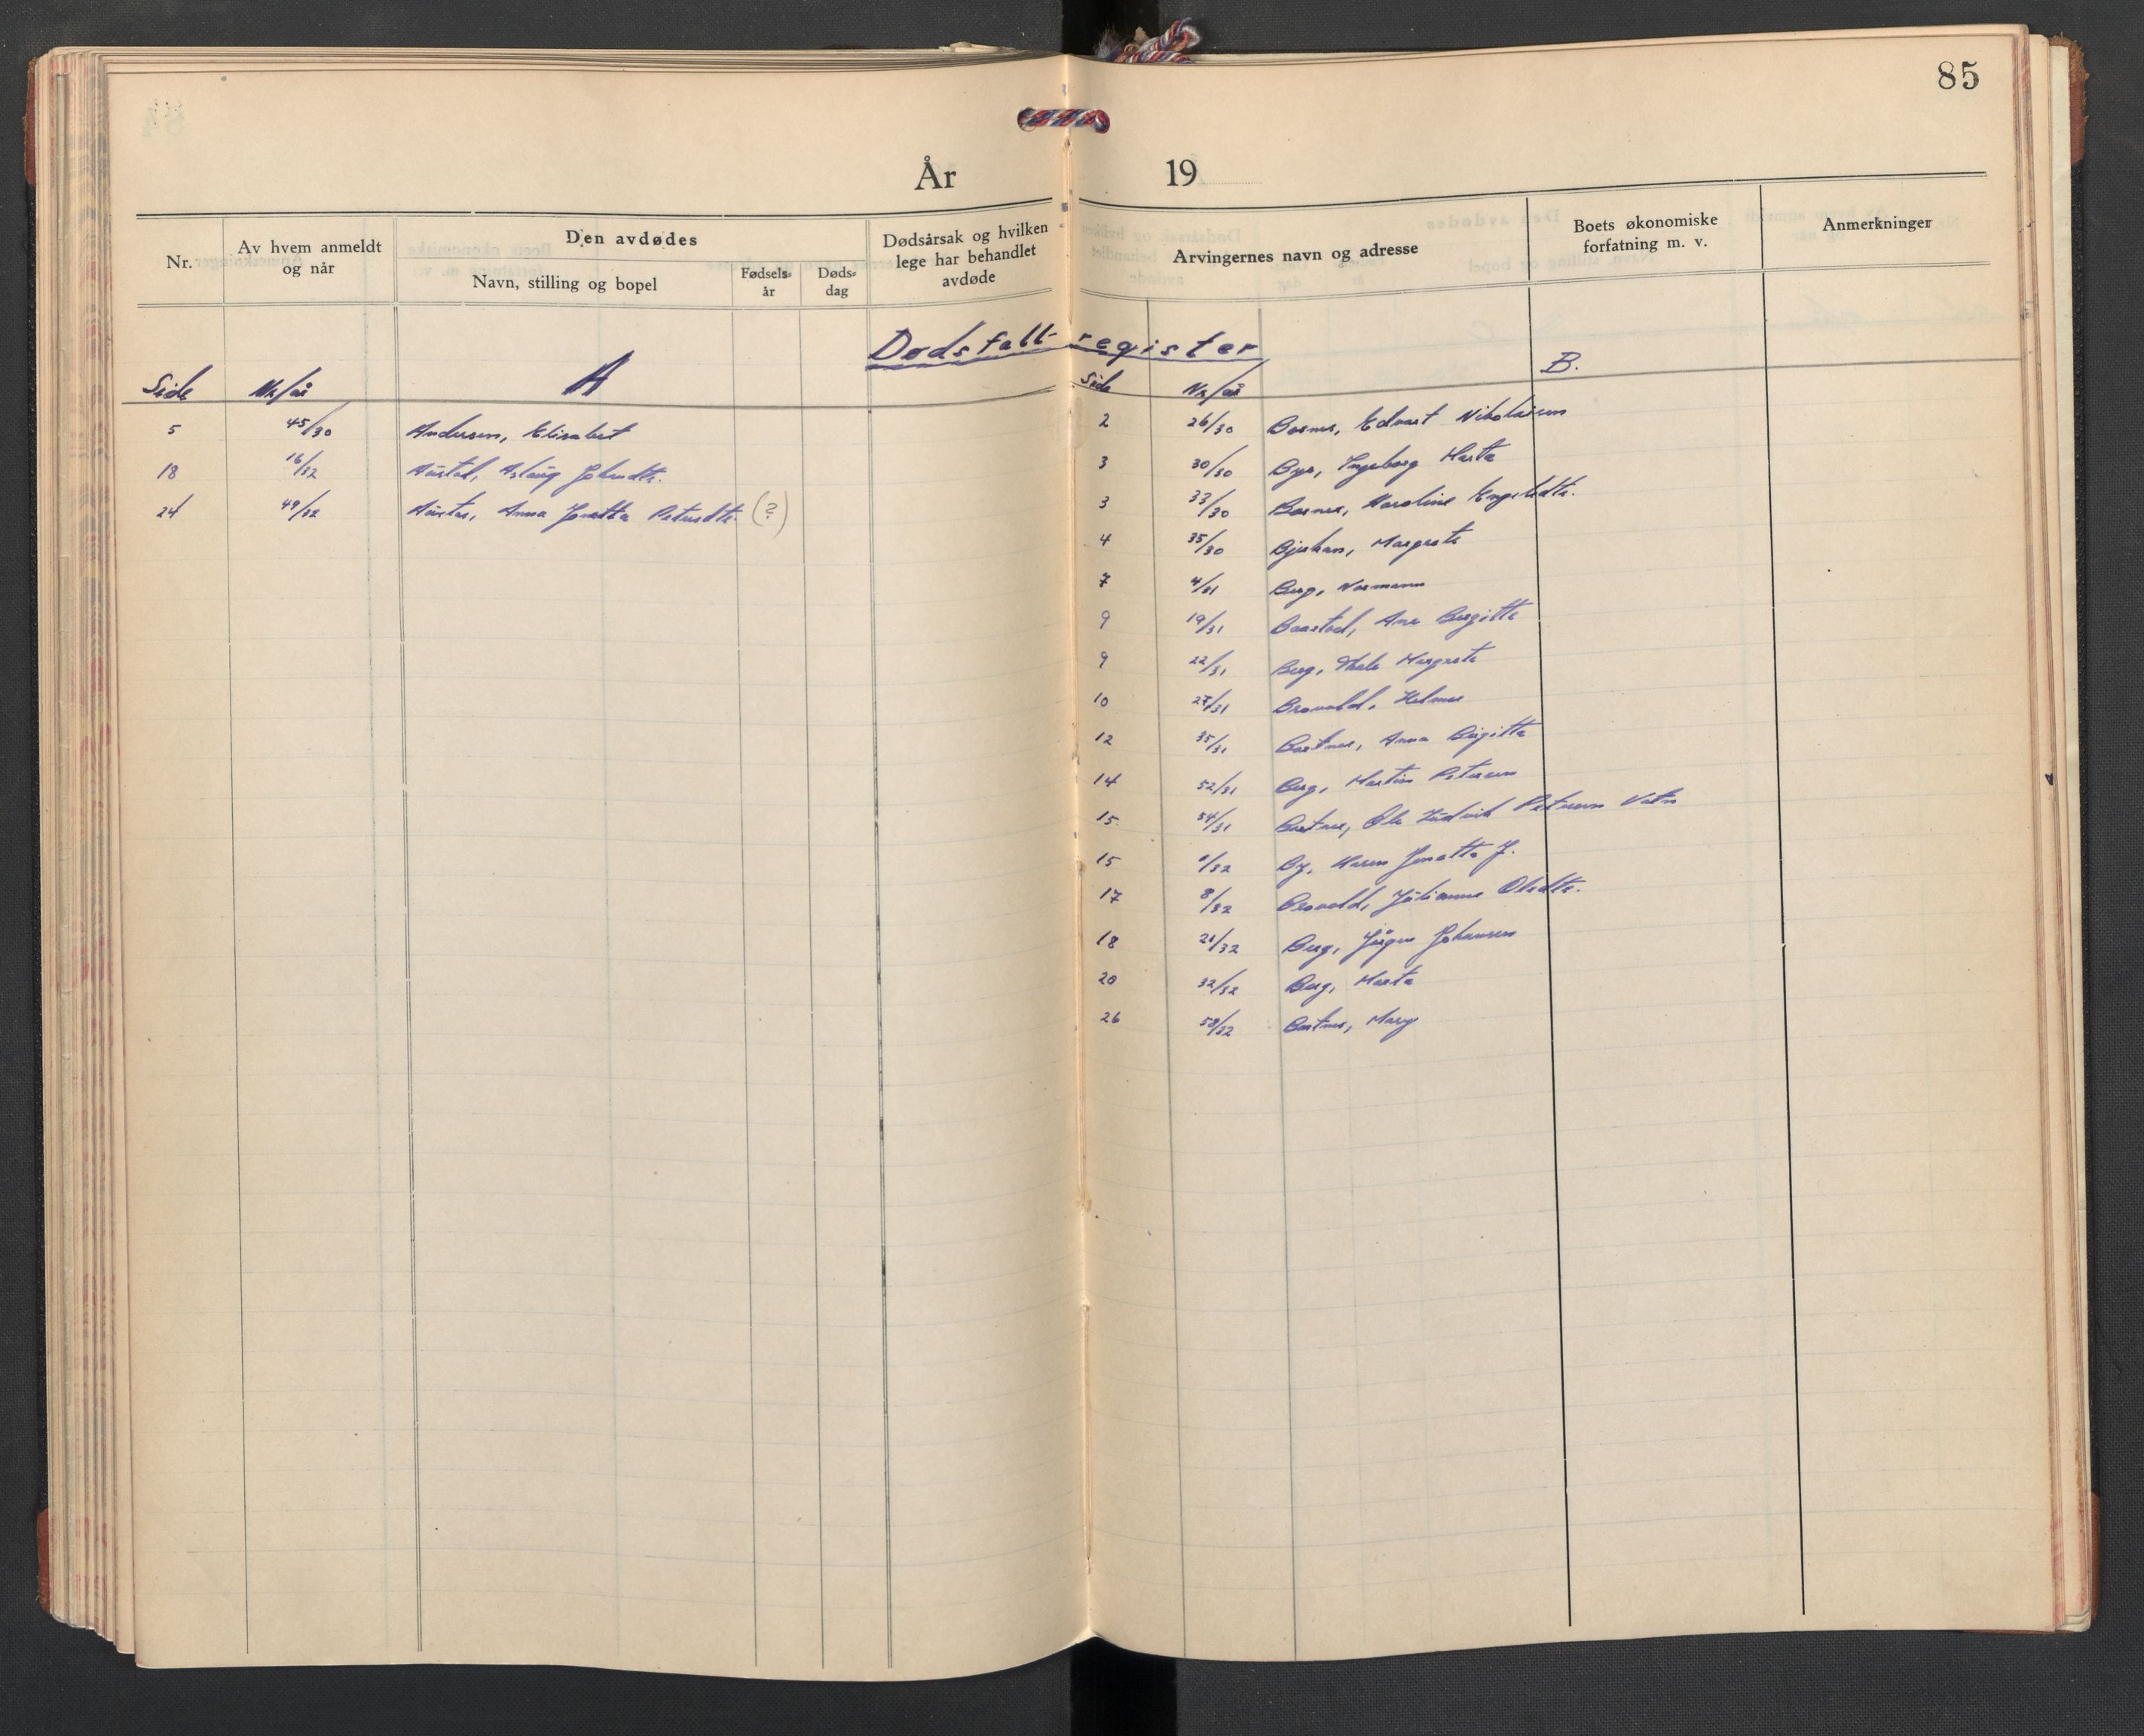 85
År 19
Nr.
Av hvem anmeldt
og når
Den avdødes
Navn, stilling og bopel
Fødsels-
år
Døds-
dag
Dødsårsak og hvilken
lege har behandlet
avdøde
Arvingernes navn og adresse
Boets økonomiske
forfatning m. v.
Anmerkninger
Dødsfall-register
Side Nr/år A
5 45/30 Andersen, Elisabet
18 16/32 Aústad, Aslaúg Johandtr.
24 49/32 Anna Jonetta Petersdtr. (?)
B.
Side Nr/år
2 26/30 Edvart Nikolaisen
3 30/30 Ingeborg Marta
3 33/30 Karoline
4 35/30 Margrete
7 4/31 Berg, Normann
9 19/31 Bergitte
9 22/31 Berg, Margrete
10 27/31 Brovold, Helmer
12 35/31 Anna Birgitta
14 52/31 Berg, Martin Petersen
15 54/31 Ole Lúdvik Petersen Vatn
15 /32 By, Karen Jonetta J.
17 8/32 Brovold, Júlianne Olsdtr.
18 21/32 Berg, Jørgen Johansen
20 32/32 Berg, Marta
26 58/32 Mary